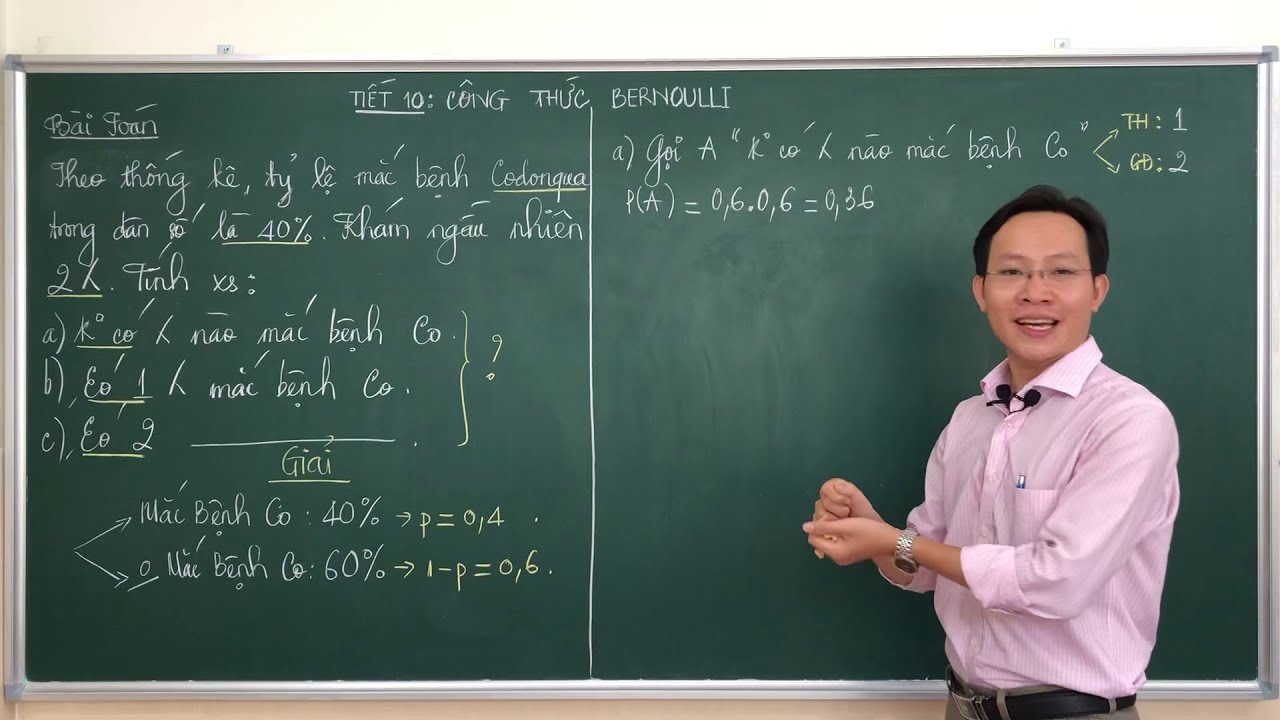 TIẾT 10: CÔNG THỨC BERNOULLI
Bài Toán
Theo thống kê, tỷ lệ mắc bệnh Codonqua
trong dân số là 40%. Khám ngẫu nhiên
2 λ. Tính xs:
a) Kº có λ nào mắc bệnh Co.
b) Có 1 λ mắc bệnh Co.
c) Có 2
?
Giải
Mắc Bệnh Co: 40% → p = 0,4.
0 Mắc Bệnh Co: 60% → 1-p = 0,6.
a) Gọi A "Kº có λ nào mắc bệnh Co"
TH: 1
GĐ: 2
P(A) = 0,6.0,6 = 0,36